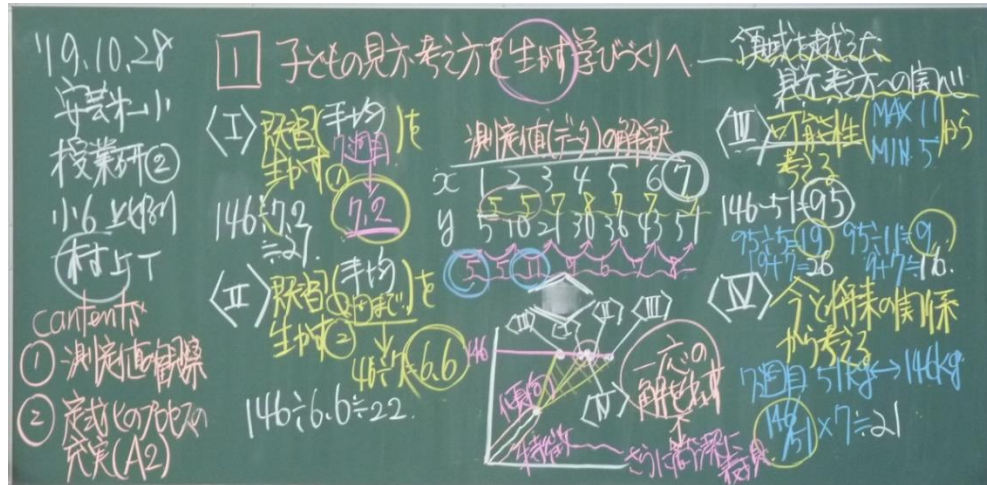 '19.10.28
授業研②
小6 比例
村上T
contents
① 測定値の観察
② 定式化のプロセスの
充実(A2)
1 子どもの見方・考え方を生かす学びづくりへ
領域を越えた
見方・考え方への関心
〈Ⅰ〉既習(平均
7週目)を
生かす①
7.2
146÷7.2
≒21
〈Ⅱ〉既習(平均
7週目まで)を
生かす②
46÷7≒6.6
146÷6.6≒22.
測定値(データ)の解釈
x 1 2 3 4 5 6 7
5 5 7 8 7 7
y 5 10 21 30 36 43 51
5 5 11
〈Ⅱ〉 〈Ⅰ〉 〈Ⅲ〉
146
〈Ⅳ〉
傾向
特徴
一応の
解を出す
さらに
〈Ⅲ〉可能性(MAX 11
MIN 5)から
考える
146-51=95
95÷5=19 95÷11≒9
9+7=16.
〈Ⅳ〉今と将来の関係
から考える
7週目 51kg↔146kg
146/51×7≒21